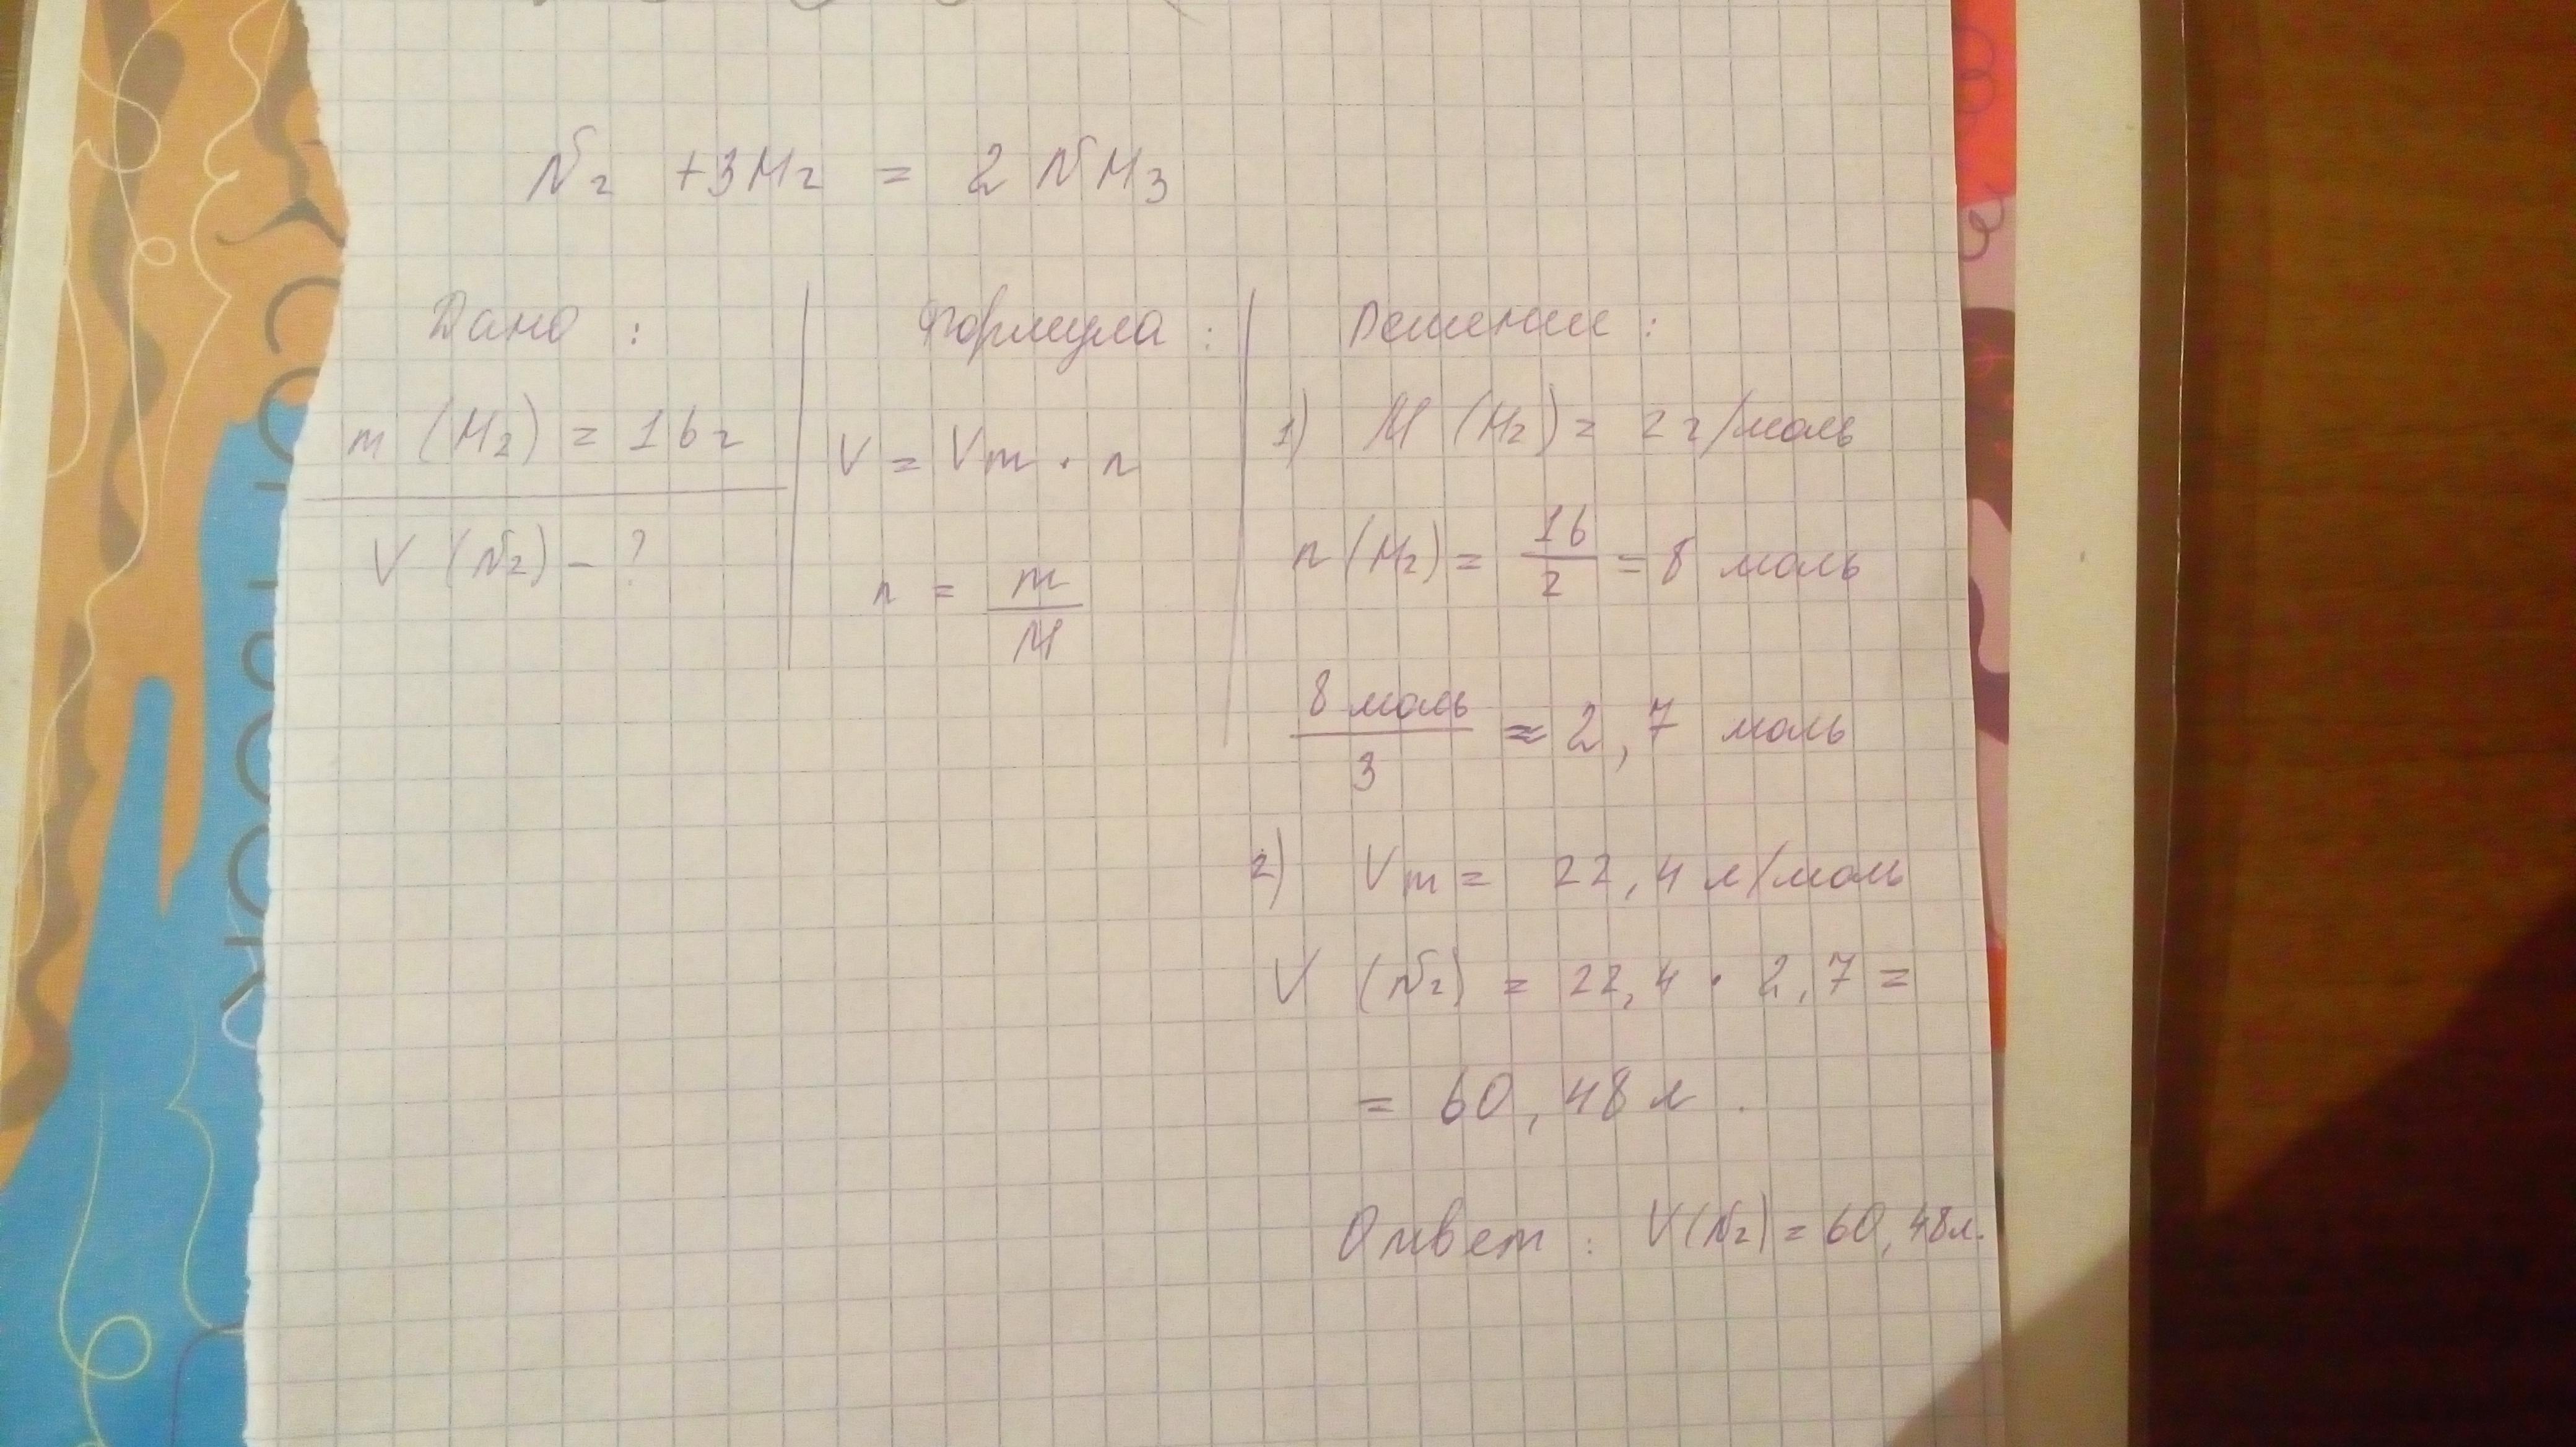 N₂ + 3H₂ = 2 NH₃
Дано :
m (H₂) = 16 г
V (N₂) - ?
Формула :
V = Vm · n
n = m / M
Решение :
1) M (H₂) = 2 г/моль
n (H₂) = 16 / 2 = 8 моль
8 моль / 3 ≈ 2,7 моль
2) Vm = 22,4 л/моль
V (N₂) = 22,4 · 2,7 =
= 60,48 л .
Ответ : V(N₂) = 60,48л.